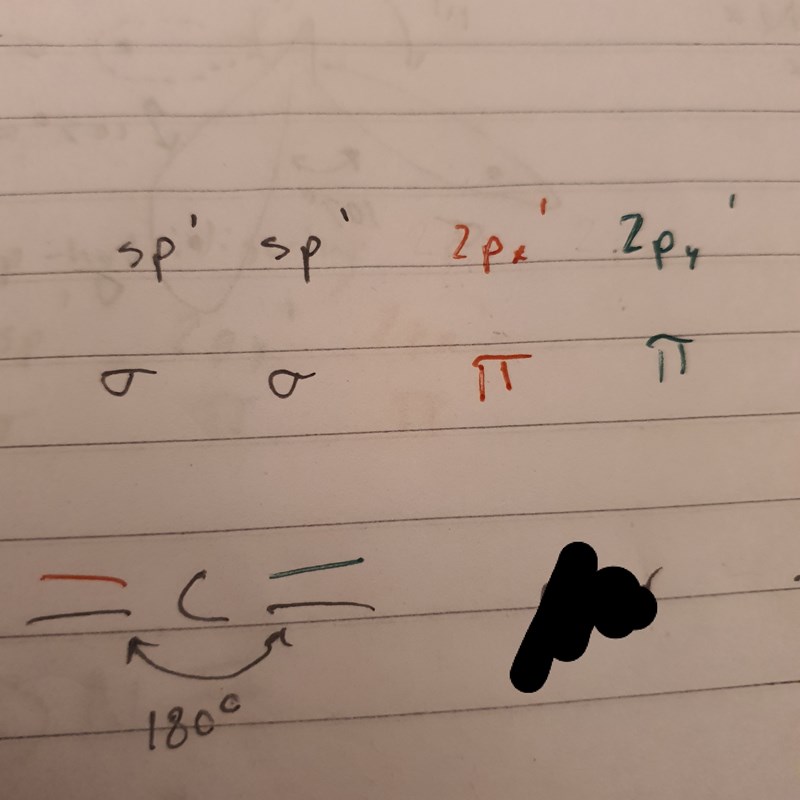 sp¹ sp¹ 2pₓ¹ 2pᵧ¹
σ σ π π
= C =
180°